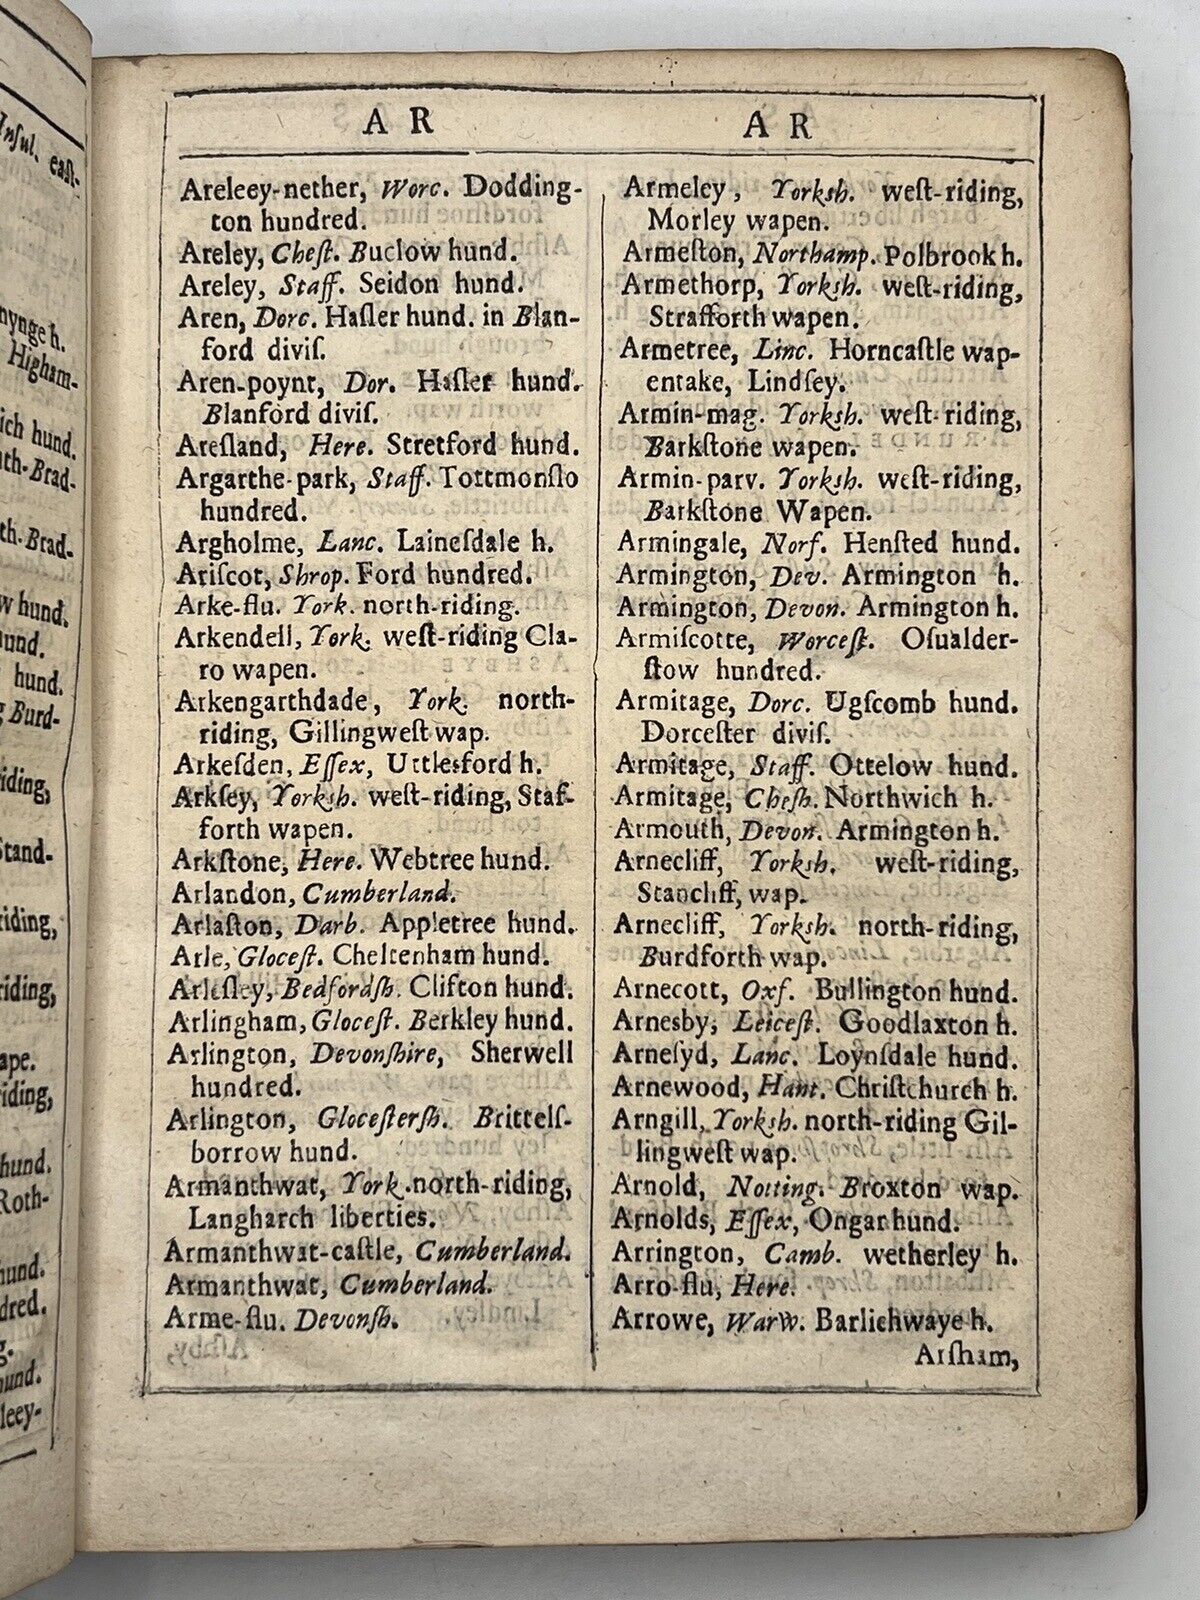 Inſul. eaſt-
hynge h.
Higham-
ich hund.
th-Brad-
th-Brad-
w hund.
hund.
hund.
g Burd-
iding,
Stand-
riding,
riding,
ape.
iding,
hund.
Roth-
hund.
dred.
g.
hund.
leey-
A R
Areleey-nether, Worc. Dodding-
ton hundred.
Areley, Cheſt. Buclow hund.
Areley, Staff. Seidon hund.
Aren, Dorc. Haſler hund. in Blan-
ford diviſ.
Aren-poynt, Dor. Haſler hund.
Blanford diviſ.
Areſland, Here. Stretford hund.
Argarthe-park, Staff. Tottmonſlo
hundred.
Argholme, Lanc. Laineſdale h.
Ariſcot, Shrop. Ford hundred.
Arke-flu. York. north-riding.
Arkendell, York. weſt-riding Cla-
ro wapen.
Arkengarthdade, York. north-
riding, Gillingweſt wap.
Arkeſden, Eſſex, Uttlesford h.
Arkſey, Yorkſh. weſt-riding, Staf-
forth wapen.
Arkſtone, Here. Webtree hund.
Arlandon, Cumberland.
Arlaſton, Darb. Appletree hund.
Arle, Gloceſt. Cheltenham hund.
Arleſley, Bedfordſh. Clifton hund.
Arlingham, Gloceſt. Berkley hund.
Arlington, Devonſhire, Sherwell
hundred.
Arlington, Gloceſterſh. Brittelſ-
borrow hund.
Armanthwat, York. north-riding,
Langharch liberties.
Armanthwat-caſtle, Cumberland.
Armanthwat, Cumberland.
Arme-flu. Devonſh.
A R
Armeley, Yorkſh. weſt-riding,
Morley wapen.
Armeſton, Northamp. Polbrook h.
Armethorp, Yorkſh. weſt-riding,
Strafforth wapen.
Armetree, Linc. Horncaſtle wap-
entake, Lindſey.
Armin-mag. Yorkſh. weſt-riding,
Barkſtone wapen.
Armin-parv. Yorkſh. weſt-riding,
Barkſtone Wapen.
Armingale, Norf. Henſted hund.
Armington, Dev. Armington h.
Armington, Devon. Armington h.
Armiſcotte, Worceſt. Oſualder-
ſtow hundred.
Armitage, Dorc. Ugſcomb hund.
Dorceſter diviſ.
Armitage, Staff. Ottelow hund.
Armitage, Cheſh. Northwich h.
Armouth, Devon. Armington h.
Arnecliff, Yorkſh. weſt-riding,
Stancliff, wap.
Arnecliff, Yorkſh. north-riding,
Burdforth wap.
Arnecott, Oxf. Bullington hund.
Arnesby, Leiceſt. Goodlaxton h.
Arneſyd, Lanc. Loynſdale hund.
Arnewood, Hant. Chriſtchurch h.
Arngill, Yorkſh. north-riding Gil-
lingweſt wap.
Arnold, Notting. Broxton wap.
Arnolds, Eſſex, Ongar hund.
Arrington, Camb. wetherley h.
Arro-flu, Here.
Arrowe, Warw. Barlichwaye h.
Arſham,